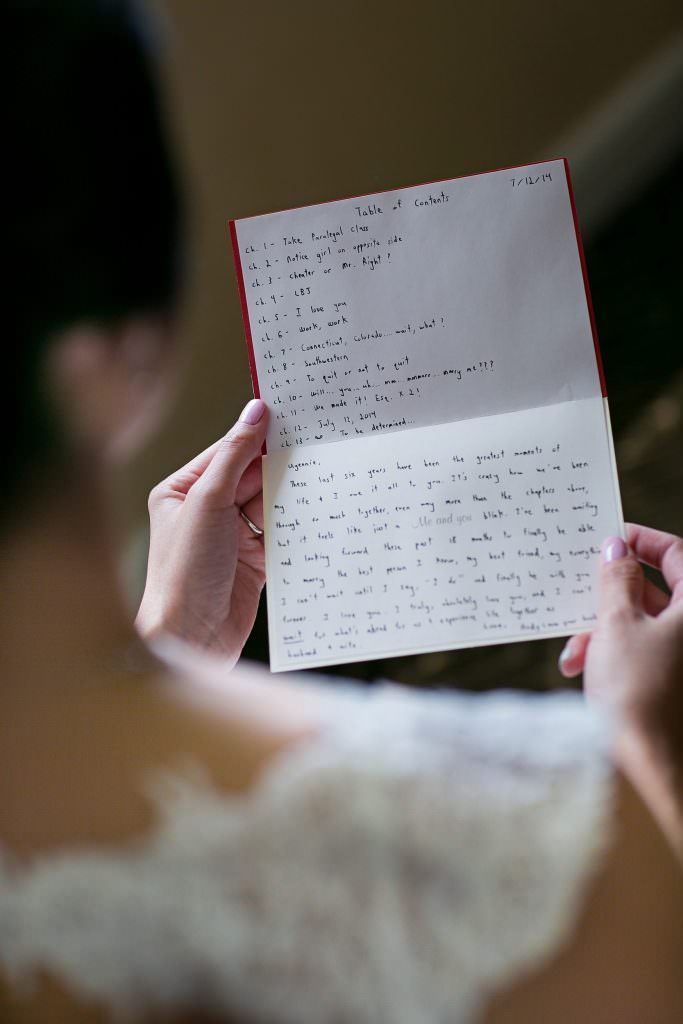 7/12/14
Table of Contents
ch. 1 - Take Paralegal Class
ch. 2 - Notice girl on opposite side
ch. 3 - Cheater or Mr. Right?
ch. 4 - LBJ
ch. 5 - I love you
ch. 6 - Work, work
ch. 7 - Connecticut, Colorado.... wait, what?
ch. 8 - Southwestern
ch. 9 - To quit or not to quit
ch. 10 - Will... you... uh... mm... mmmarr... marry me???
ch. 11 - We made it! Esq. x 2!
ch. 12 - July 12, 2014
ch. 13 - To be determined...
These last six years have been the greatest moments of
my life & I owe it all to you. It's crazy how we've been
through so much together, even way more than the chapters above,
but it feels like just a blink. I've been waiting
Me and you
and looking forward these past months to finally be able
to marry the best person I know, my best friend, my everything
I can't wait until I say, "I do" and finally be with you
forever. I love you. I truly, absolutely love you, and I can't
wait for what's ahead for us & experience life together as
husband & wife.